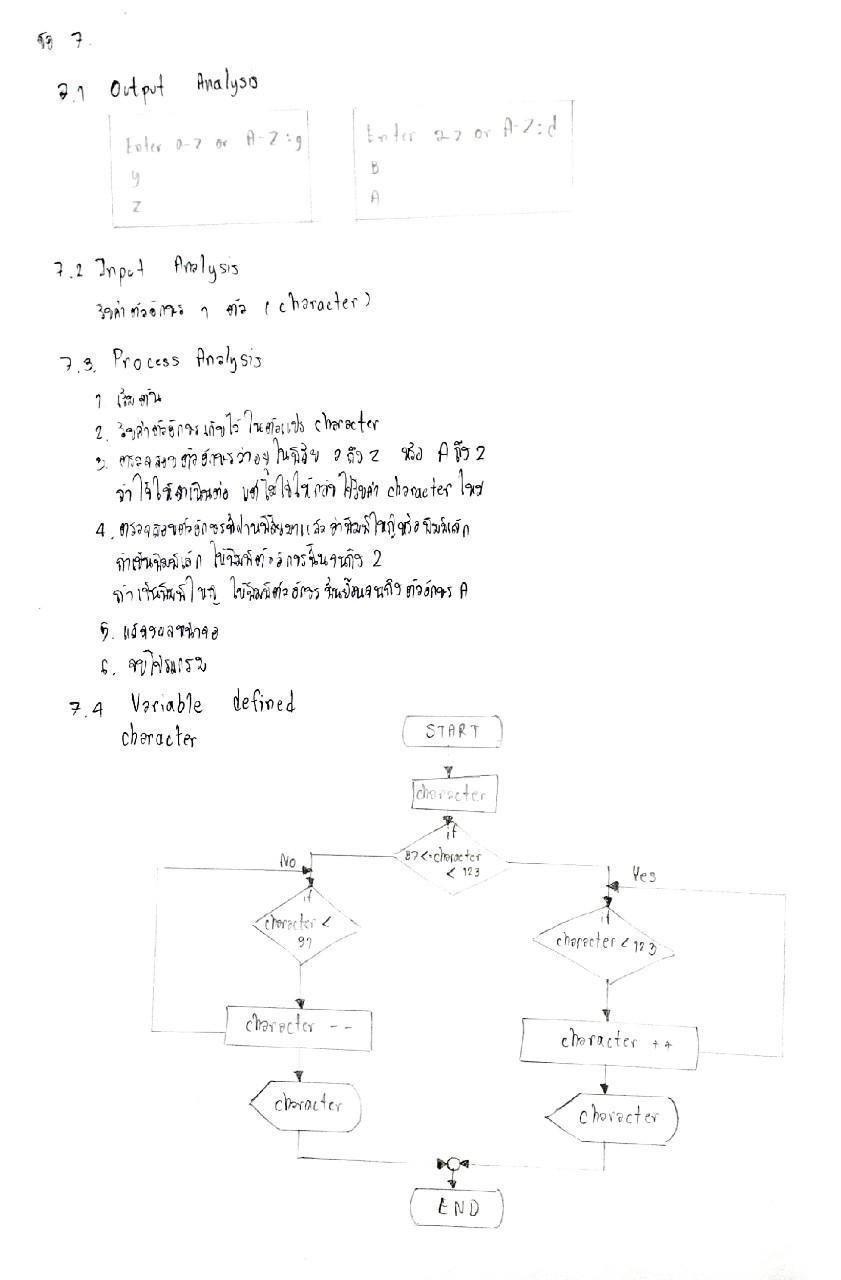 ข้อ 7.
7.1 Output Analysis
Enter a-z or A-Z : g
y
z
Enter a-z or A-Z : d
B
A
7.2 Input Analysis
รับค่าตัวอักษร 1 ตัว (character)
7.3. Process Analysis
1 เริ่มต้น
2. รับค่าตัวอักษรเก็บไว้ในตัวแปร character
3. ตรวจสอบตัวอักษรว่าอยู่ในพิสัย a ถึง z หรือ A ถึง Z
ถ้าใช่ให้ดำเนินต่อ แต่ไม่ใช่ให้กลับไปรับค่า character ใหม่
4. ตรวจสอบตัวอักษรที่ผ่านพิสัยมาแล้ว ว่าพิมพ์ใหญ่หรือพิมพ์เล็ก
ถ้าเป็นพิมพ์เล็ก ให้พิมพ์ตัวอักษรขึ้นจนถึง z
ถ้าเป็นพิมพ์ใหญ่ ให้พิมพ์ตัวอักษร ย้อนจนถึง ตัวอักษร A
5. แสดงผลหน้าจอ
6. จบโปรแกรม
7.4 Variable defined
character
START
character
if
97 <= character
< 123
No
Yes
if
character <
97
if
character < 123
character --
character ++
character
character
END